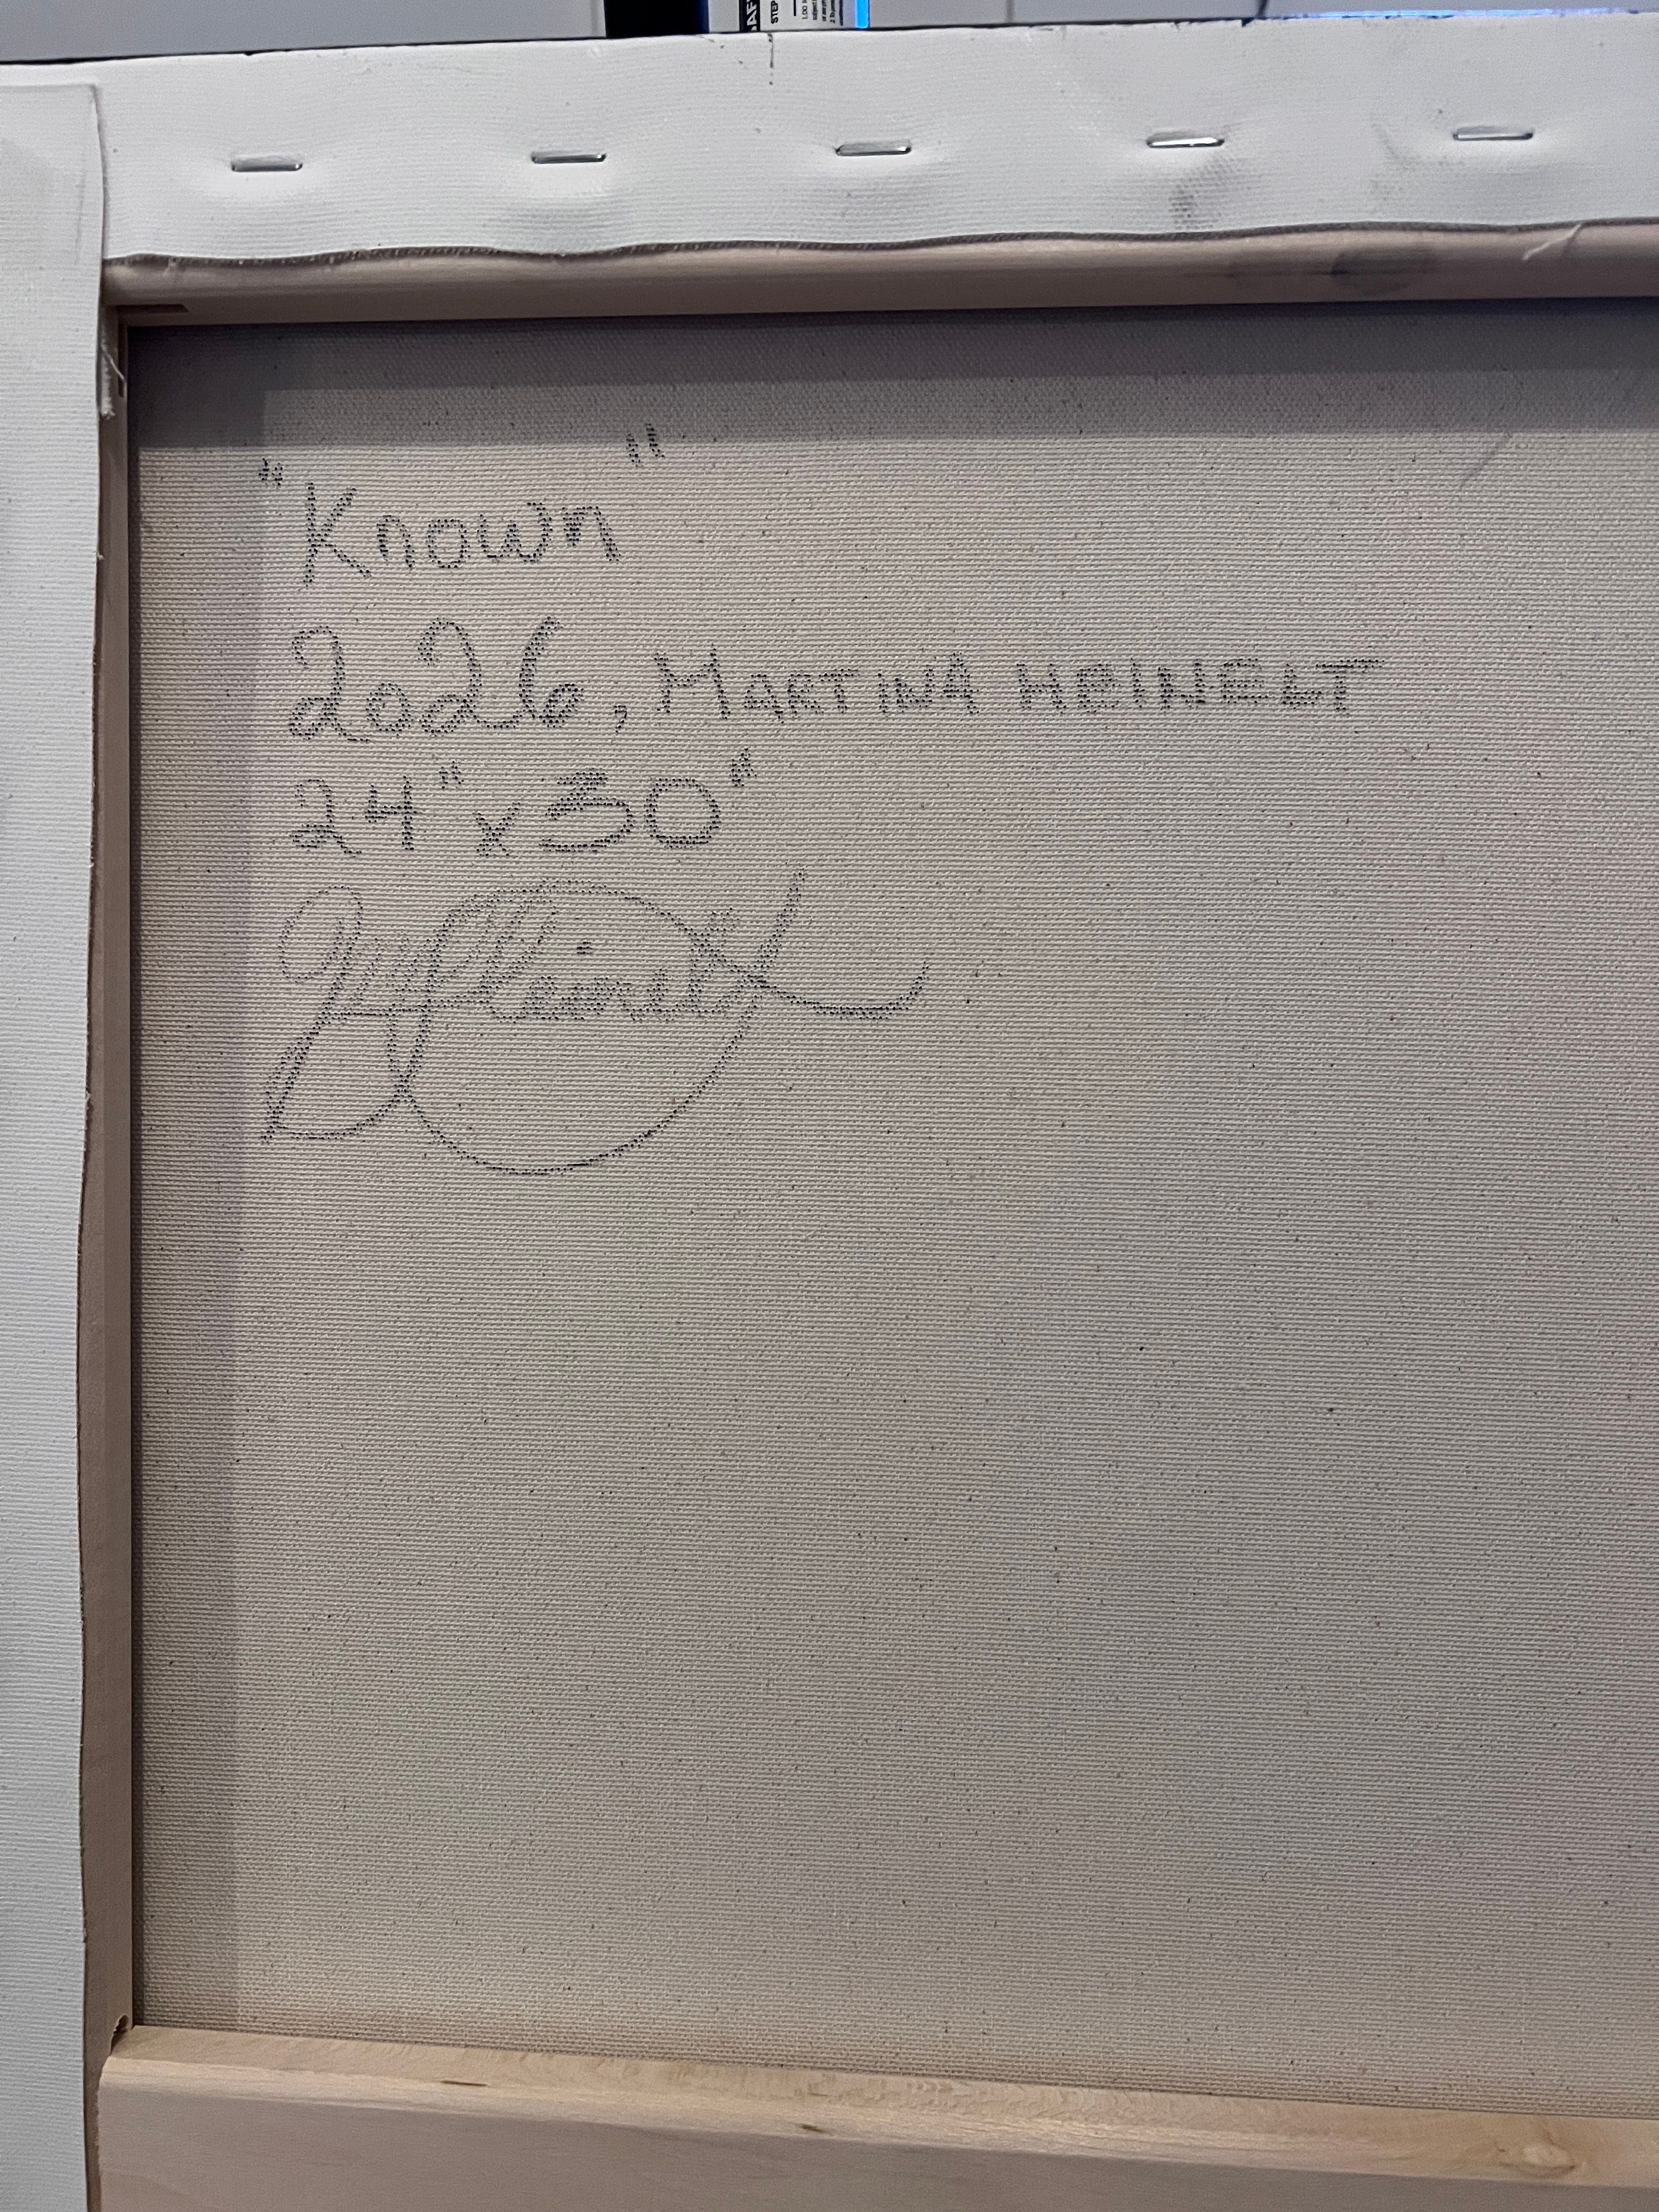 "Known"
2026, MARTINA HEINELT
24" x 30"